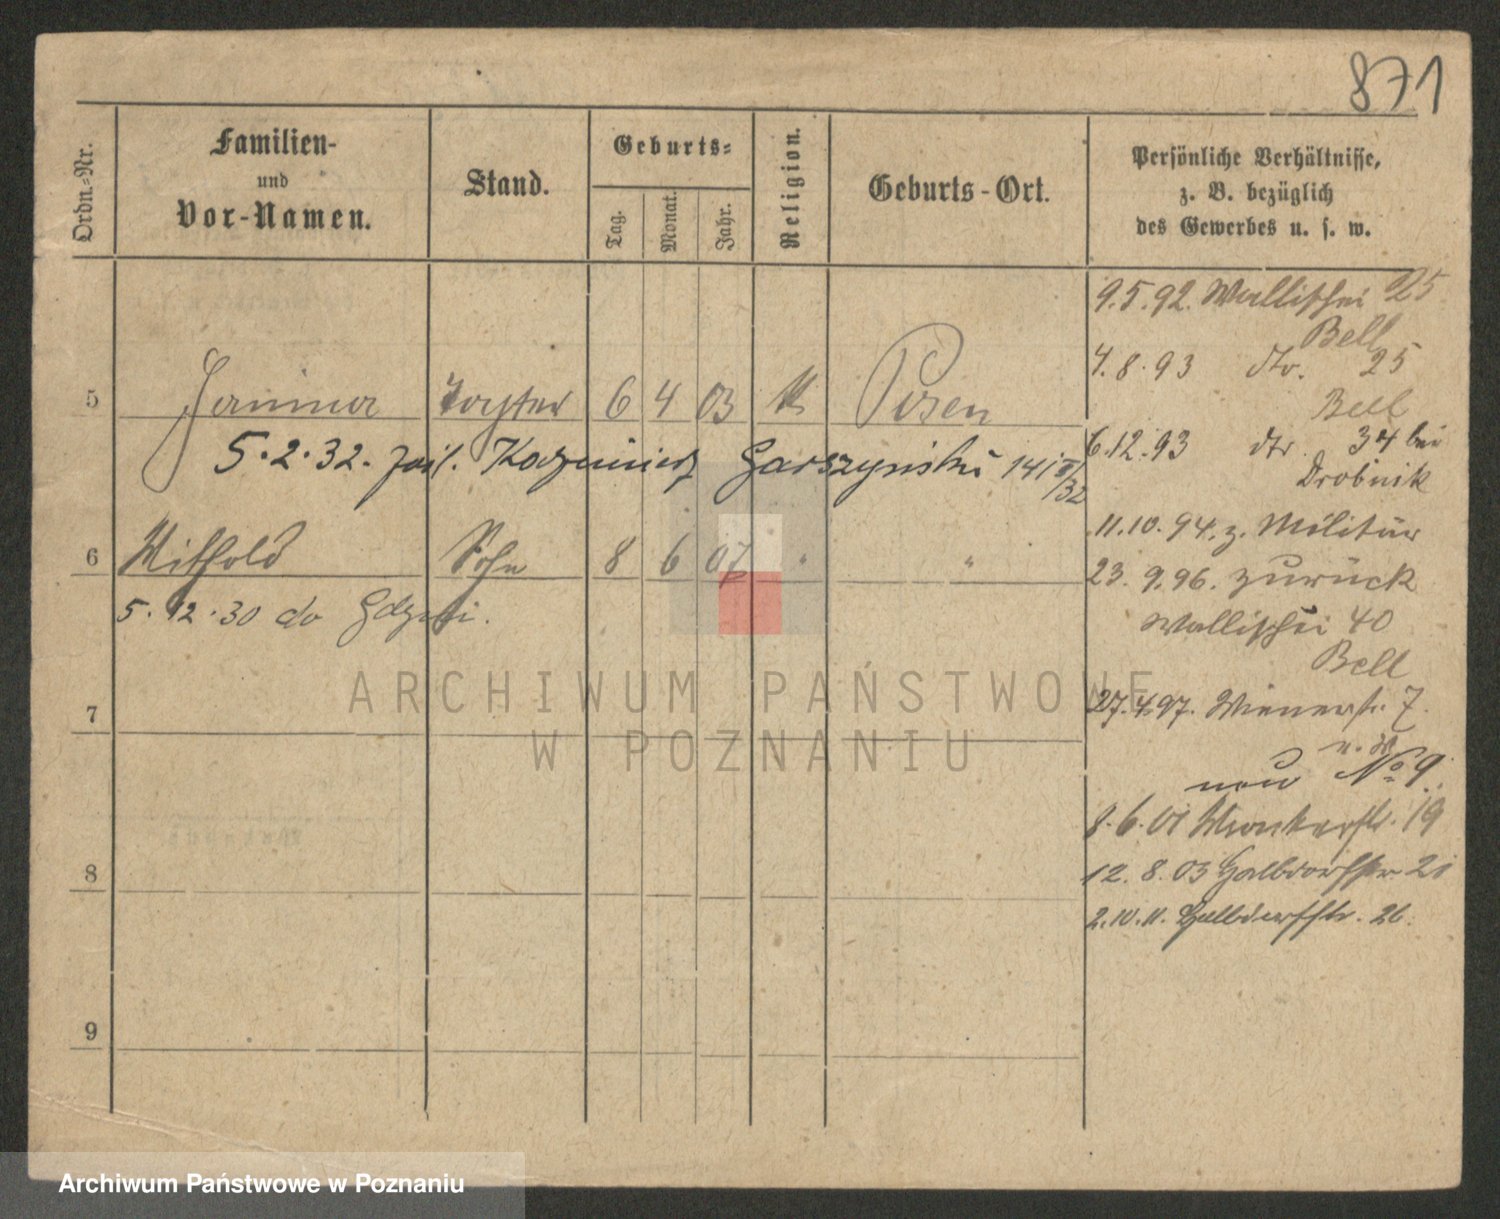 871
Ordn.-Nr.
Familien-
und
Vor-Namen.
Stand.
Geburts-
Tag.
Monat.
Jahr.
Religion.
Geburts-Ort.
Persönliche Verhältnisse,
z. B. bezüglich
des Gewerbes u. s. w.
9.5.92. Wallischei 25
Bell
4.8.93 dto. 25
Bell
5 Janina Tochter 6 4 03 k Posen
6.12.93 dto. 34 bei
Drobnik
5.2.32. Kazimierz Garszyński 141
6 Withold Sohn 8 6 07 " "
5.12.30 do Gdyni.
11.10.94. z. Militär
23.9.96. zurück
Wallischei 40
Bell
7
27.4.97. Wienerstr. 7.
neu No 9.
8.6.01 Wronkerstr. 19
8
12.8.03 Halbdorfstr 21
2.10.11. Halbdorfstr. 26.
9
ARCHIWUM PAŃSTWOWE
W POZNANIU
Archiwum Państwowe w Poznaniu